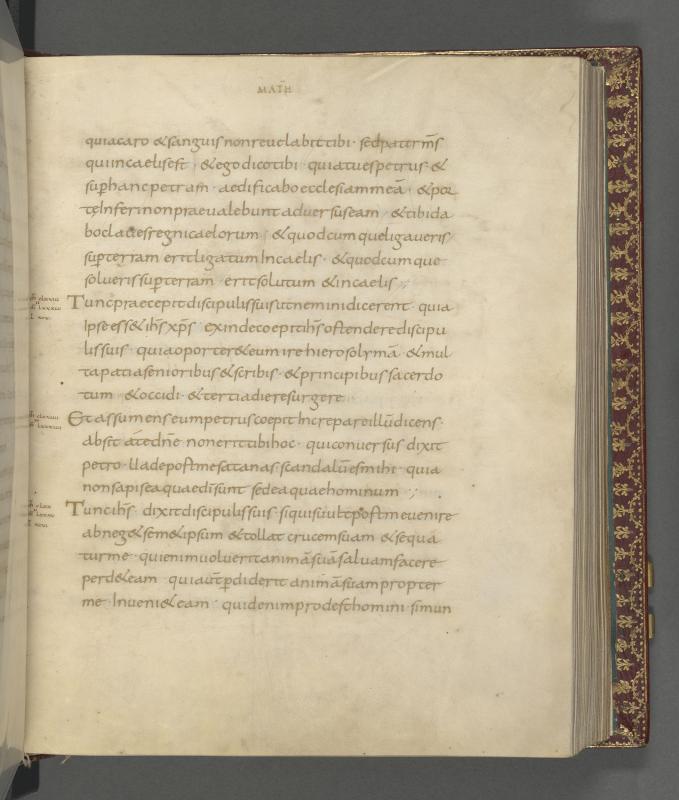 MATH
quia caro & sanguis non revelabit tibi · sed pater m̄s
qui in caelis est · & ego dico tibi · quia tu es petrus · &
sup̄ hanc petram · aedificabo ecclesiam meā · & por
tę Inferi non praevalebunt adversus eam · & tibi da
bo claves regni caelorum · & quodcumque ligaveris
sup̄ terram erit ligatum In caelis · & quodcumque
solveris sup̄ terram · erit solutum & in caelis ·,
Tunc praecepit discipulis suis ut nemini dicerent · quia
Ipse ess& ih̄s xp̄s · exinde coepit ih̄s ostendere discipu
lis suis · quia oporter& eum ire hierosolymā · & mul
ta pati a senioribus & scribis · & principibus sacerdo
tum · & occidi · & tertia die resurgere
Et assumens eum petrus coepit Increpare illū dicens ·
absit a te dn̄e non erit tibi hoc · qui conversus dixit
petro · Uade post me satanas · scandalū es mihi · quia
non sapis ea quae dī sunt sed ea quae hominum ·,
Tunc ih̄s dixit discipulis suis · si quis vult post me venire
abneg& sem&ipsum & tollat crucem suam & sequa
tur me · qui enim voluerit animā suā salvam facere
perd& eam · qui aūt p̄diderit animā suam propter
me · Inveni& eam · quid enim prodest homini · si mun